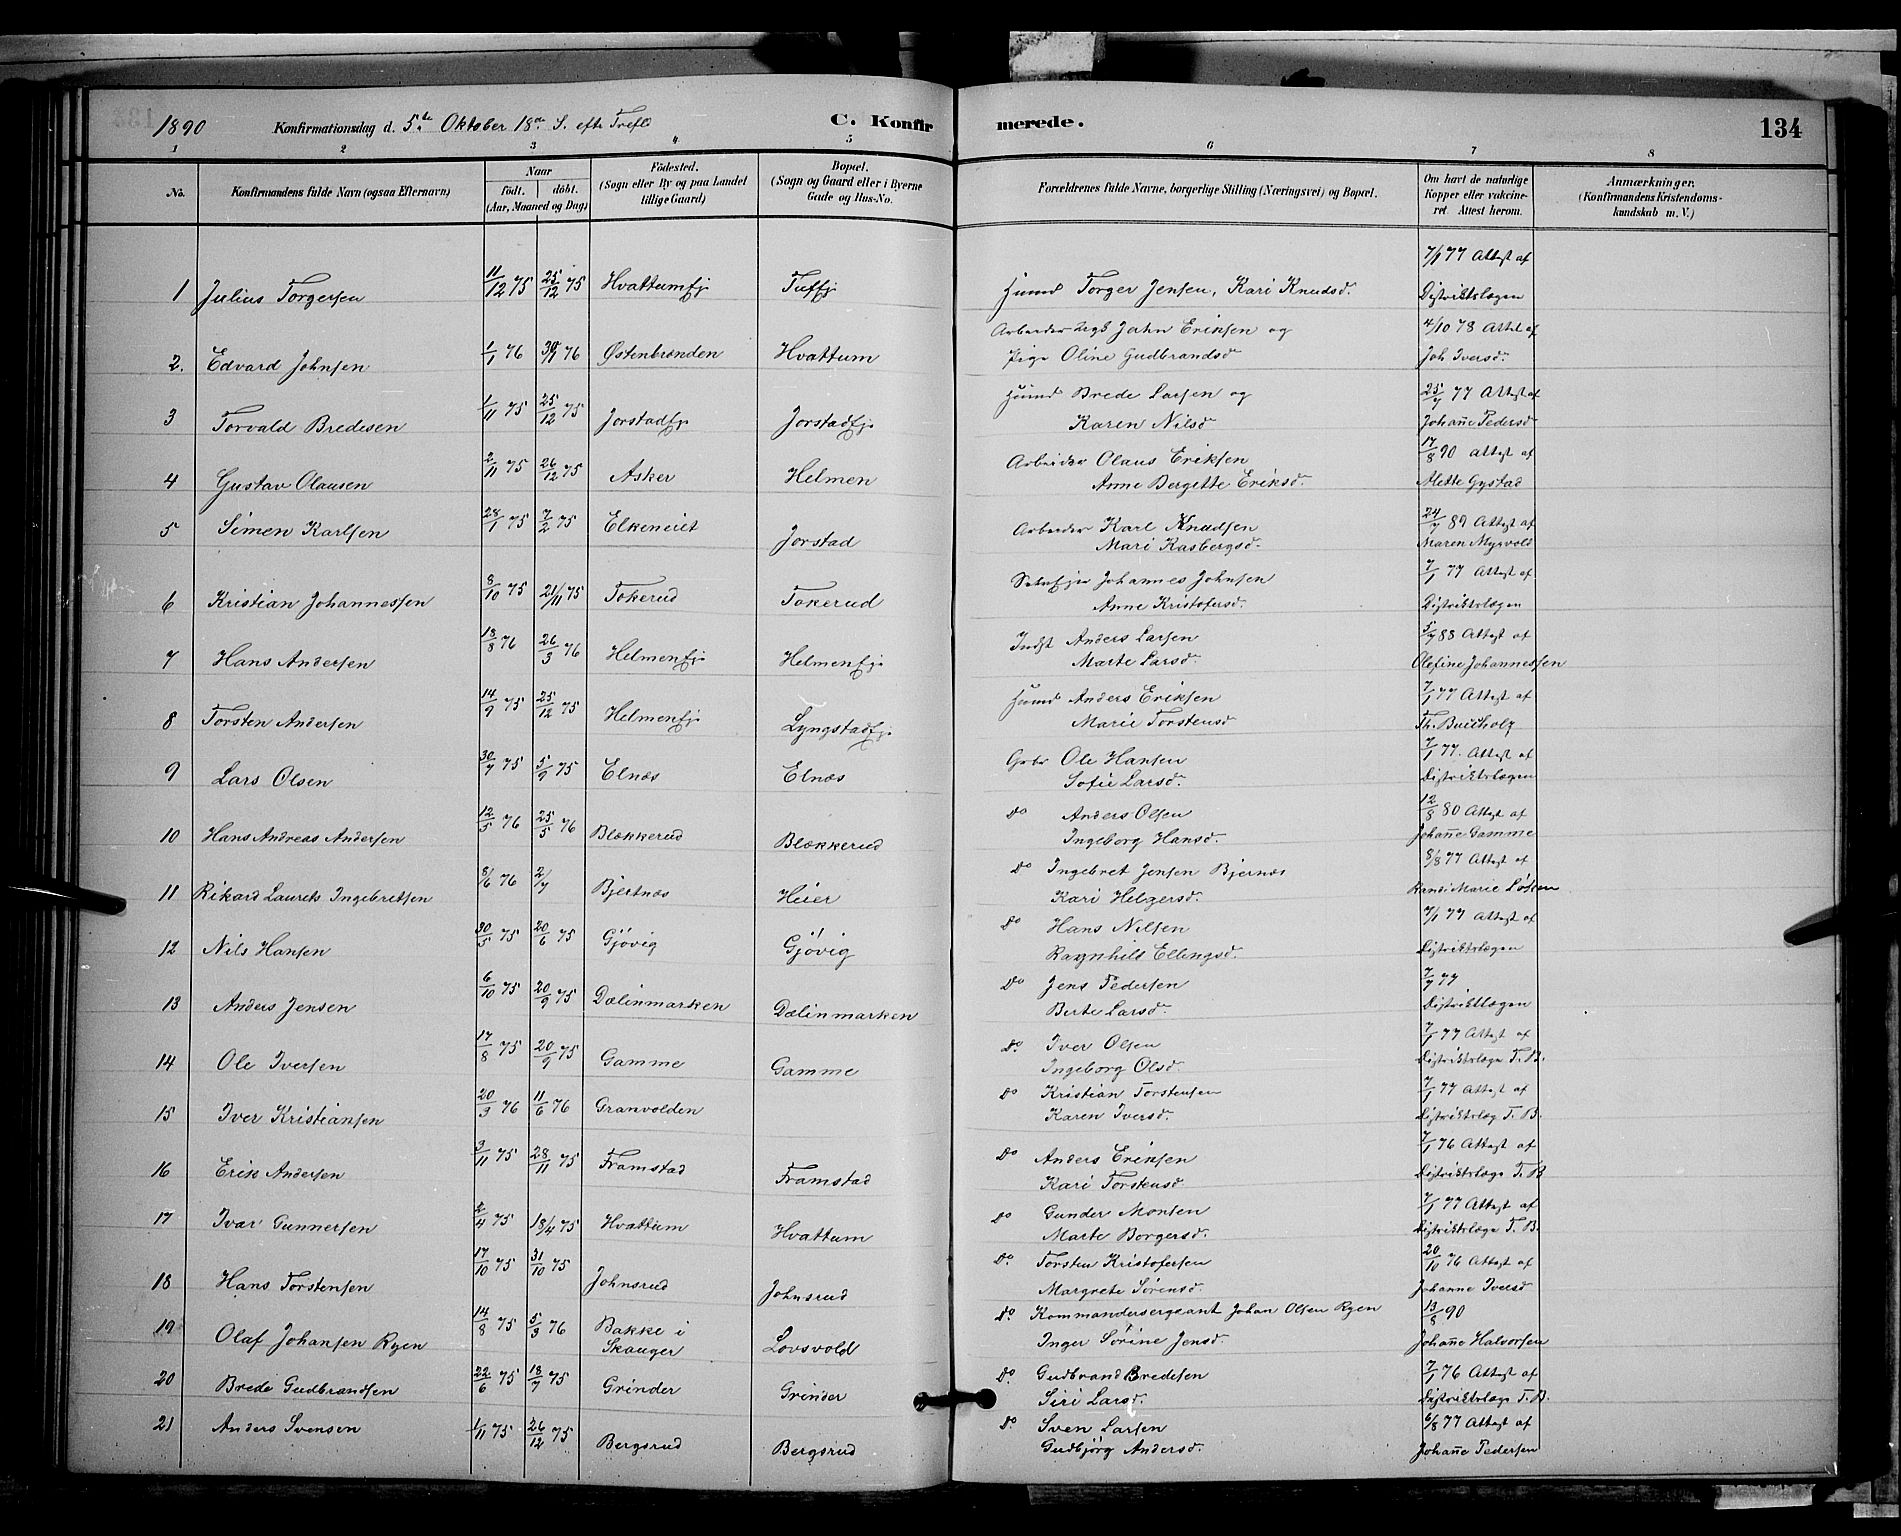 1890 Konfirmationsdag d. 5.te Oktober 18de S. efter Trefb C. Konfirmerede. 134
1 2 3 4 5 6 7 8
No. Konfirmandens fulde Navn (ogsaa Efternavn) Naar födt. döbt. (Aar, Maaned og Dag) Födested. (Sogn eller By og paa Landet tillige Gaard) Bopæl. (Sogn og Gaard eller i Byerne Gade og Hus-No. Forældrenes fulde Navne, borgerlige Stilling (Næringsvei) og Bopæl. Om havt de naturlige Kopper eller vakcineret Attest herom. Anmærkninger. (Konfirmandens Kristendomskundskab m. V.)
1 Julius Torgersen 11/12 75 25/12 75 Hvattumej. Husmd Torger Jensen, Kari Knudsd. 7/1 77 Attest af Distriktslægen
2. Edvard Johnsen 1/1 76 30/1 76 Østenbrænden Hvattum Arbeider Ugb John Eriksen og Pige Oline Gudbrandsd 4/10 78 Attst af Joh Iversd.
3 Torvald Bredesen 1/11 75 25/12 75 Jorstadej. Jorstadej. Husmd Brede Larsen og Karen Nilsd 25/7 77 Attest af Johañe Pedersd
4 Gustav Olausen 2/11 75 26/12 75 Asker Helmen Arbeider Olaus Eriksen Anne Bergette Eriksd. 17/8 90 Attest af Mette Gystad
5 Simen Karlsen 28/1 75 7/2 75 Elkeneiet Jorstad Arbeider Karl Knudsen Mari Kasbergsd. 24/7 89 Attest af Maren Myrvold
6 Kristian Johannessen 8/10 75 21/11 75 Tokerud Tokerud Johannes Johnsen Anne Kristofersd. 7/1 77 Attest af Distriktslægen
7 Hans Andersen 18/8 76 26/3 76 Helmenej. Helmenej. Indst Anders Larsen Marte Larsd. 5/7 83 Attest af Olefine Johannessen
8 Torsten Andersen 14/9 75 25/12 75 Helmenej. Lyngstadej. Husmd Anders Eriksen Marie Torstensd 7/1 77 Attest af Th. Buchholz
9 Lars Olsen 30/7 75 5/9 75 Elnæs Elnæs Gbr Ole Hansen Sofie Larsd. 7/1 77. Attest af Distriktslægen
10 Hans Andreas Andersen 12/5 76 25/5 76 Blækkerud Blækkerud Do Anders Olsen Ingeborg Hansd. 12/8 80 Attest af Johañe Gamme
11 Rikard Laurets Ingebretsen 8/6 76 2/7 Bjertnæs Heier Do Ingebret Jensen Bjernæs Kari Helgersd. 8/8 77 Attest af Randi Marie
12 Nils Hansen 30/5 75 20/6 75 Gjøvig Gjøvig Do Hans Nilsen Ragnhild Ellingsd. 7/1 77 Attest af Distriktslægen
13 Anders Jensen 6/10 75 20/9 75 Dælinmarken Dælinmarken Do Jens Pedersen Berte Larsd. 7/9 77 Distriktlægen
14 Ole Iversen 17/8 75 20/9 75 Gamme Gamme Do. Iver Olsen Ingeborg Olsd. 7/1 77 Attest af Distriktslæge T. B.
15 Iver Kristiansen 20/3 76 11/6 76 Granvolden Do Kristian Torstensen Karen Iversd. 7/1 77 Attest af Distriktslæg T. B.
16 Erik Andersen 3/11 75 28/11 75 Framstad Framstad Do Anders Eriksen Kari Torstensd 7/1 76 Attest af Distriktslæge T. B
17 Ivar Gunnersen 2/4 75 18/4 75 Hvattum Hvattum Do Gunder Monsen Marte Borgersd. 7/1 77 Attest af Distriktslæge T. B.
18 Hans Torstensen 17/10 75 31/10 75 Johnsrud Johnsrud Do. Torsten Kristofersen Margrete Sørensd. 20/10 76 Attest af Johanne Iversd
19 Olaf Johansen Ryen 14/8 75 5/3 76 Bakke i Skauger Lovsvold Do. Kommandersergeant Johan Olsen Ryen Inger Sørine Jensd. 13/8 90 Johañe Halvorsen
20 Brede Gudbrandsen 22/6 75 18/7 75 Grinder Grinder Do. Gudbrand Bredesen Siri Larsd. 7/1 76 Attest af Distriktslæge T. B.
21 Anders Svensen 1/11 75 26/12 75 Bergsrud Bergsrud Do. Sven Larsen Gudbjörg Andersd. 6/8 77 Attest af Johañe Pedersen